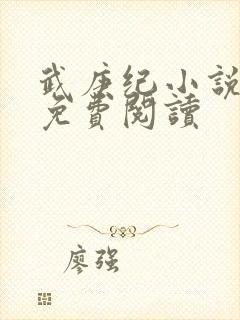 武庚纪小說
免費閱讀
廖强